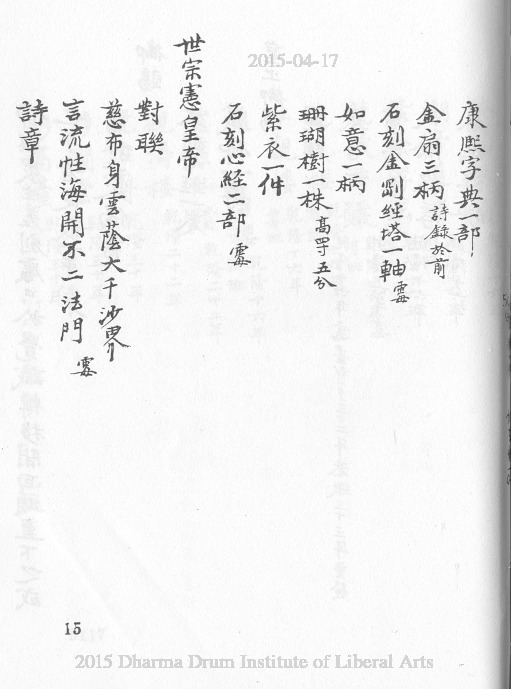 2015-04-17
康熙字典一部
金扇三柄 詩錄於前
石刻金剛經塔一軸 霉
如意一柄
珊瑚樹一株 高四寸五分
紫衣一件
石刻心經二部 霉
世宗憲皇帝
對聯
慈布身雲蔭大千沙界
言流性海開不二法門 霉
詩章
15
2015 Dharma Drum Institute of Liberal Arts